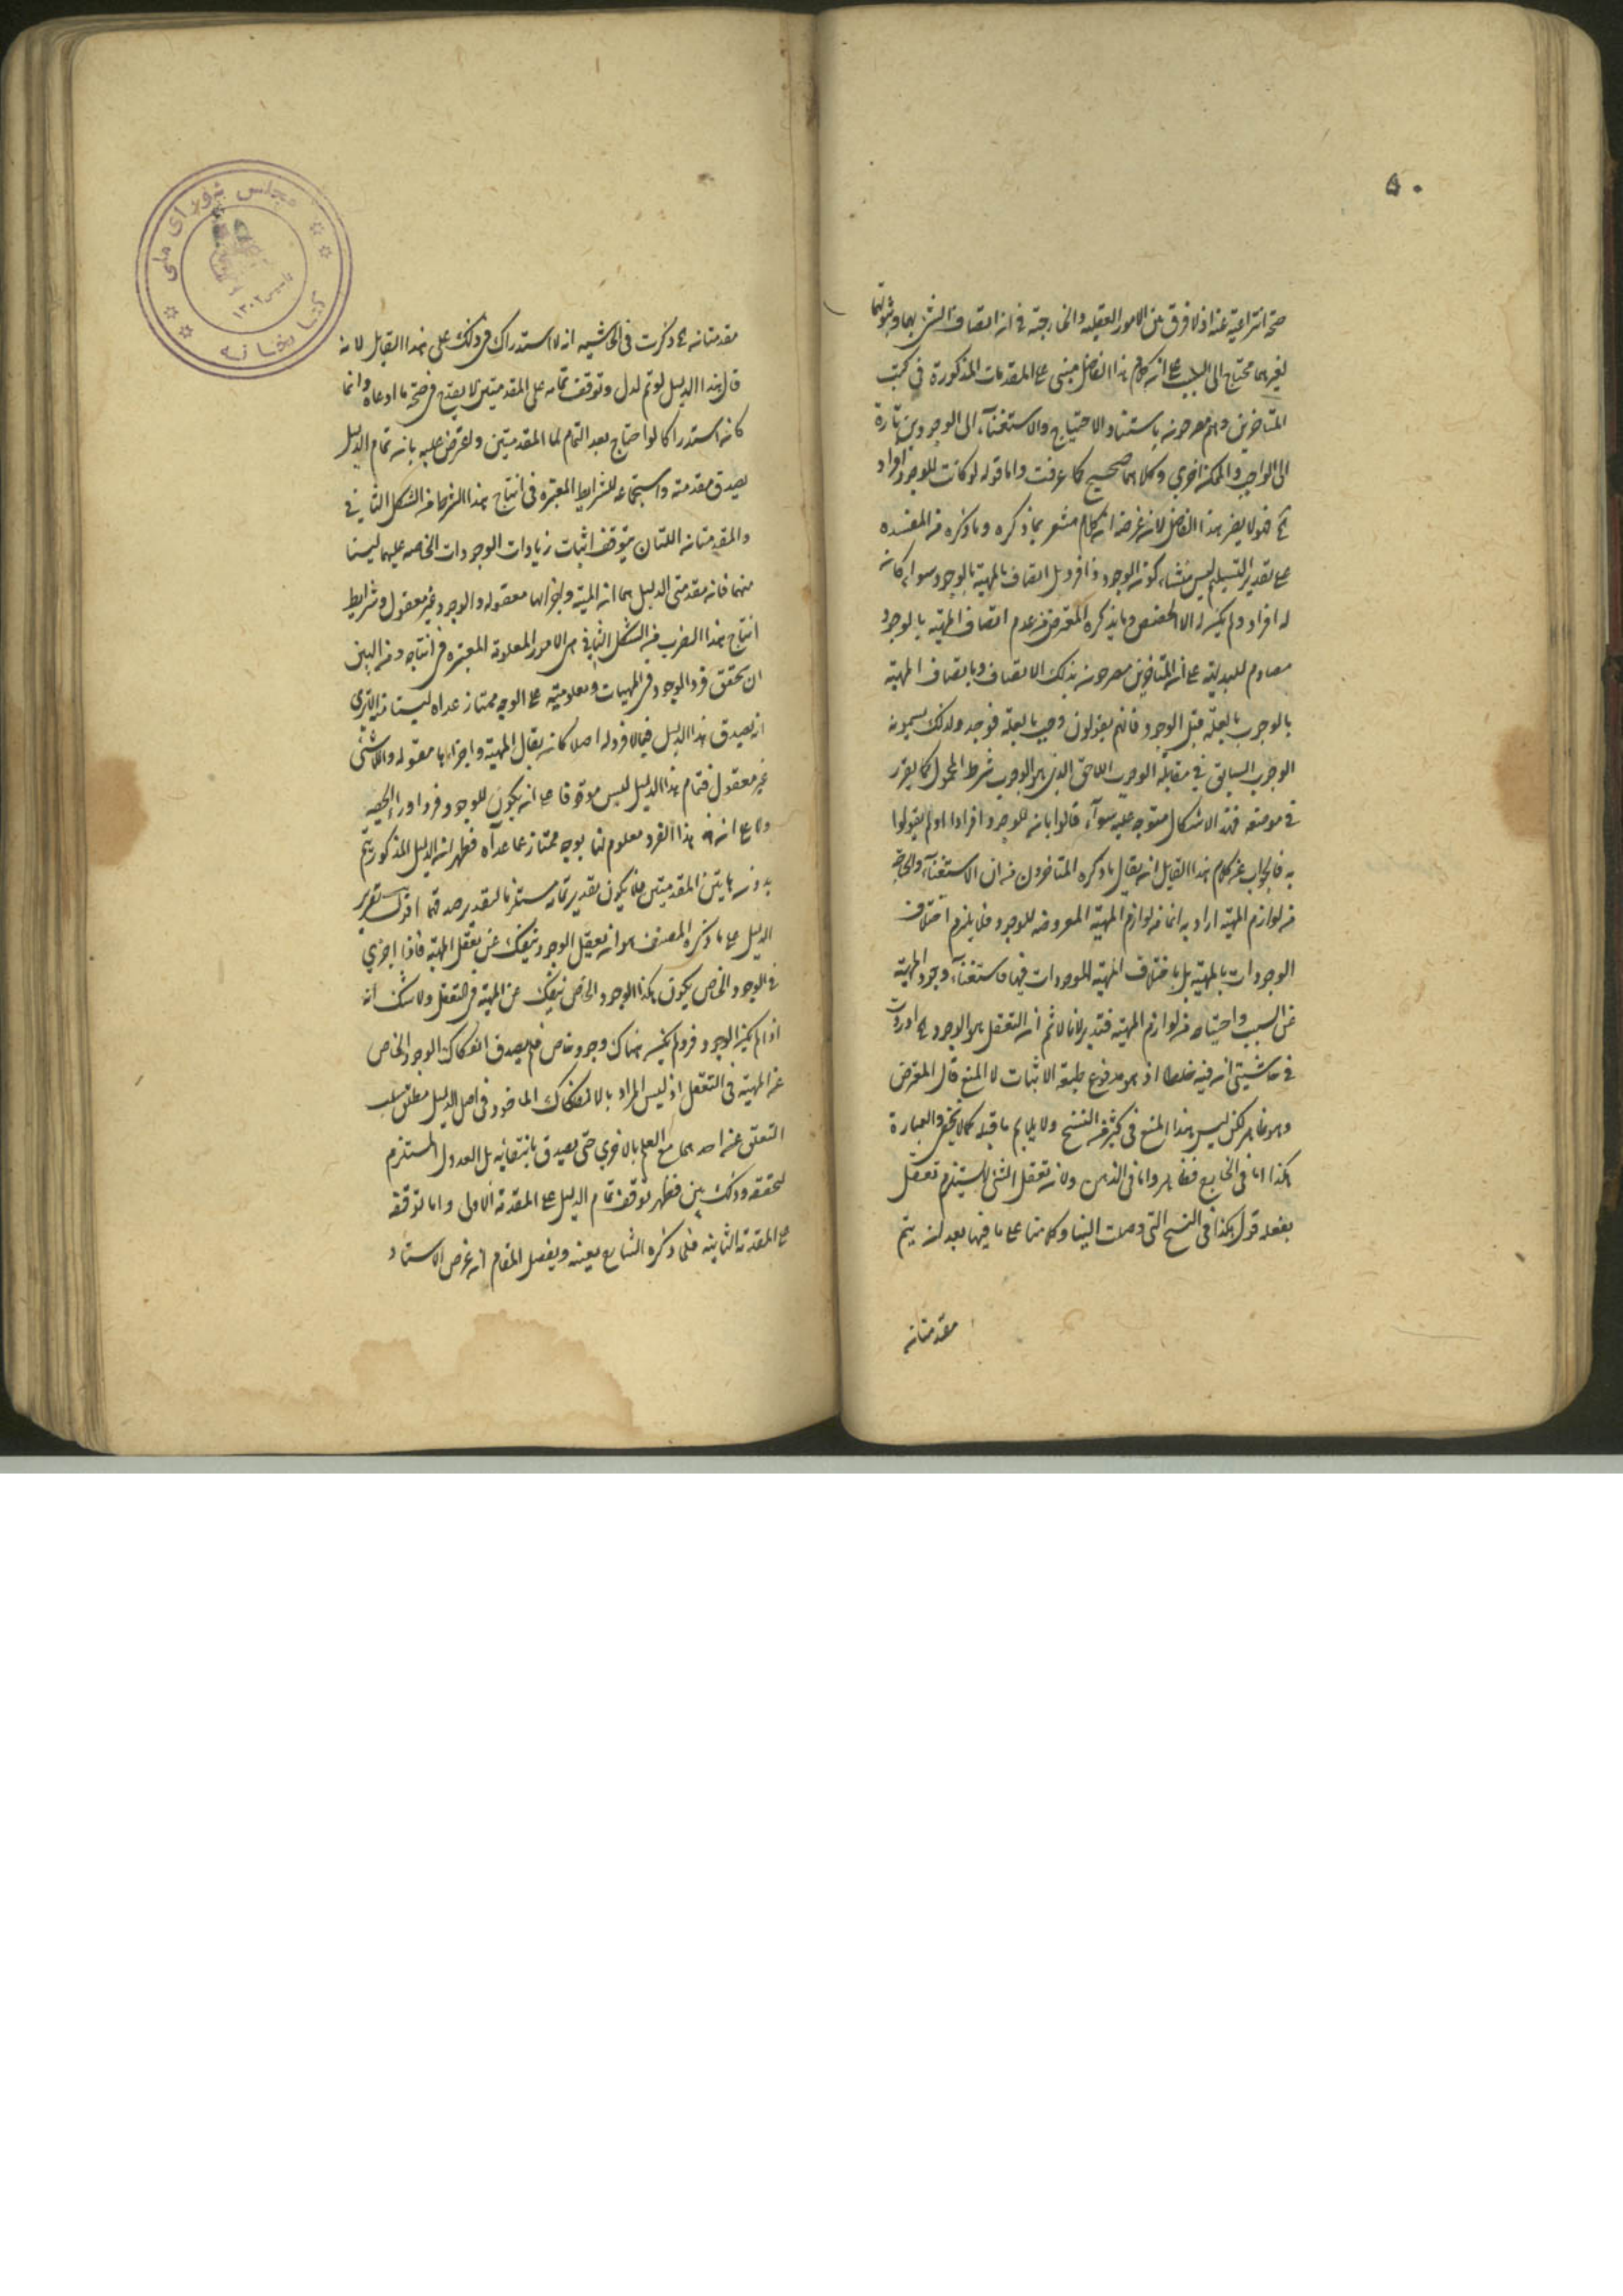 ۵۰
صحة انتزاعية عنه اذ لا فرق بين الامور العقليه والخارجية فى ان اتصاف الشئ بها وثبوتها
لغيرها محتاج الى السبب على ان كلام هذا الفاضل مبنى على المقدمات المذكورة فى كتب
المتاخرين وهم مصرحون باستناد الاحتياج والاستغناء الى الوجودين تارة
الى الواجب والممكن اخرى وكلاهما صحيح كما عرفت واما قوله لو كانت للوجود افراد
فهو لا يضر هذا الفاضل لان غرضه ان كلام مشعر بما ذكره وما ذكره من المفسده
على تقدير التسليم ليس منشاء كون الوجود ذا افراد بل اتصاف المهية بالوجود سواء كان
له افراد ولم يكن له الا الحصص وما يذكره المعترض من عدم اتصاف المهية بالوجود
مصادم للبديهة على ان المتاخرين مصرحون بذلك الاتصاف وباتصاف المهية
بالوجوب بالعلة قبل الوجود فانهم يقولون وجب بالعلة فوجد ولذلك يسمونه
الوجوب السابق فى مقابلة الوجوب اللاحق الذى هو الوجوب بشرط المحمول كما يقرر
فى موضعه فهذا الاشكال متوجه عليه سواء قالوا بان للوجود افرادا او لم يقولوا
به فالجواب عن كلام هذا القايل ان يقال ما ذكره المتاخرون من ان الاستغناء والحاجة
من لوازم المهية اراد به انها من لوازم المهية المعروضه للوجود فلا يلزم اختلاف
الوجودات بالمهية بل باختلاف المهية الموجودات فيها فاستغناء وجود المهية
عن السبب واحتياجه من لوازم المهية فتدبر لانا لا ثم ان التعقل هو الوجود اوردت
فى حاشيتى ان فيه خلطا اذ هو مدفوع بطبقة الاثبات لا المنع قال المعترض
وهو ظاهر لكن ليس هذا المنع فى كثير من النسخ ولا يلايم ما قبله كما لا يخفى والعبارة
هكذا اما فى الخارج فظاهر واما فى الذهن ولان تعقل الشئ لا يستلزم تعقل
بعقله قول هكذا فى النسخ التى وصلت الينا وكلامنا على ما فيها بعد ان يتم
مقدمتان
مقدمتانه ذكرت فى الحاشيه انه لا استدراك فى ذلك على هذا القايل لانه
قال هذا الدليل لو تم لدل وتوقف تمامه على المقدمتين لا يقدح فى صحة ما ادعاه وانما
كان استدراكا لو احتاج بعد التمام لها المقدمتين واعترض عليه بانه تمام الدليل
بصدق مقدمته واستجماعه للشرايط المعتبره فى انتاج هذا الضرب من الشكل الثانى
والمقدمتان اللتان يتوقف اثبات زيادات الوجودات الخاصه عليهما ليستا
منها فان مقدمتى الدليل هما ان المهية واجزائها معقوله والوجود غير معقول وشرايط
انتاج هذا الضرب من الشكل الثانى هى الامور المعلومة المعتبره فى انتاجه ومن البين
ان تحقق فرد الوجود فى المهيات ومعلوميته على الوجه ممتاز عداه ليستا
ان يصدق هذا الدليل فيما لا فرد له اصلا كانه يقال المهية واجزاءها معقوله واللاشئ
غير معقول فتمام هذا الدليل ليس موقوفا على ان يكون للوجود فرد او را الحصه
ولا على ان هذا الفرد معلوم لنا بوجه ممتاز عما عداه فظهر ان الدليل المذكور يتم
بدون هاتين المقدمتين فلا يكون تقدير تمامه مستلزما لتقدير صدقهما اقول تقرير
الدليل على ما ذكره المصنف هو ان تعقل الوجود ينفك عن تعقل المهية فاذا اجرى
فى الوجود الخاص يكون هكذا الوجود الخاص ينفك عن المهية فى التعقل ولا شك ان
اذا لم يكن للوجود فرد لم يكن هناك وجود خاص فلم يصدق انفكاك الوجود الخاص
عن المهية فى التعقل اذ ليس المراد بالانفكاك الماخوذ فى اصل الدليل مطلق سلب
التعلق عن احدهما مع العلم بالاخرى حتى يصدق بانتفائه بل العدول المستلزم
لتحققه وذلك بين فظهر توقف تمام الدليل على المقدمة الاولى واما توقفه
على المقدمة الثانيه فلما ذكره الشارح بعينه وبفصل المقام ان غرض الاستاد
مجلس شوراى ملى
كتابخانه
تاسيس ۱۳۰۲